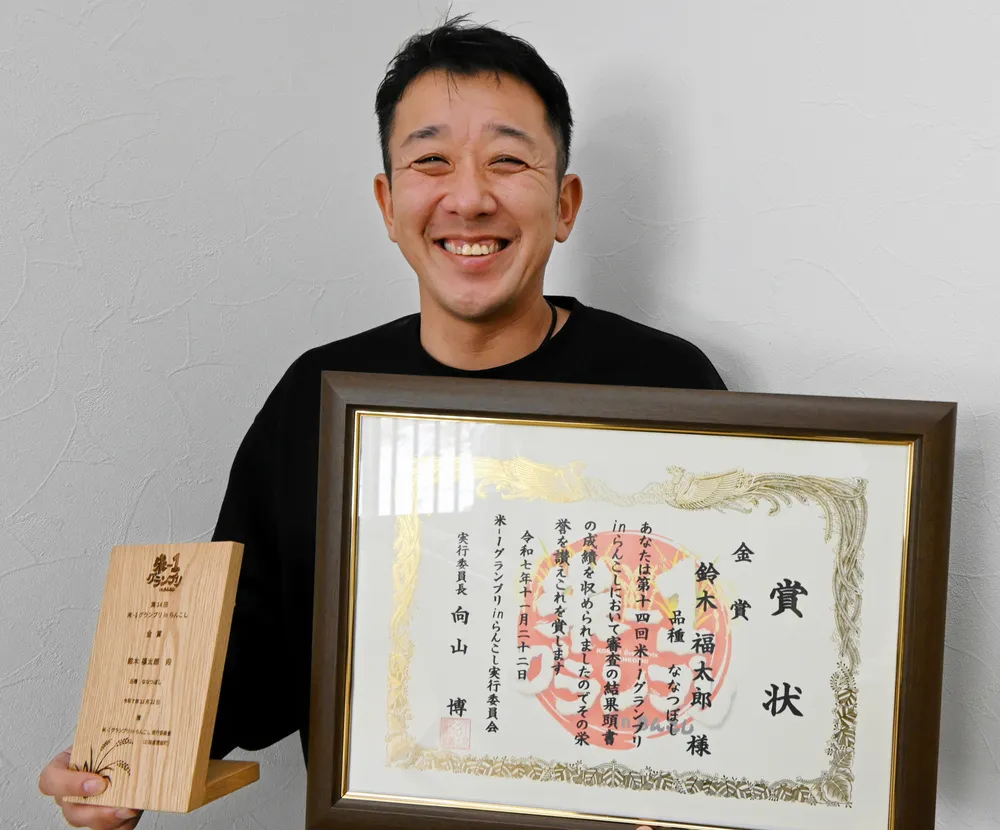 賞状
金賞
品種 ななつぼし
鈴木 福太郎 様
あなたは第十四回米-1グランプリ
inらんこしにおいて審査の結果頭書
の成績を収められましたのでその栄
誉を讃えこれを賞します
令和七年十一月二十二日
米-1グランプリinらんこし実行委員会
実行委員長 向山 博
米-1
グランプリ
第14回
米-1グランプリinらんこし
金賞
鈴木 福太郎 殿
品種 ななつぼし
令和7年11月22日